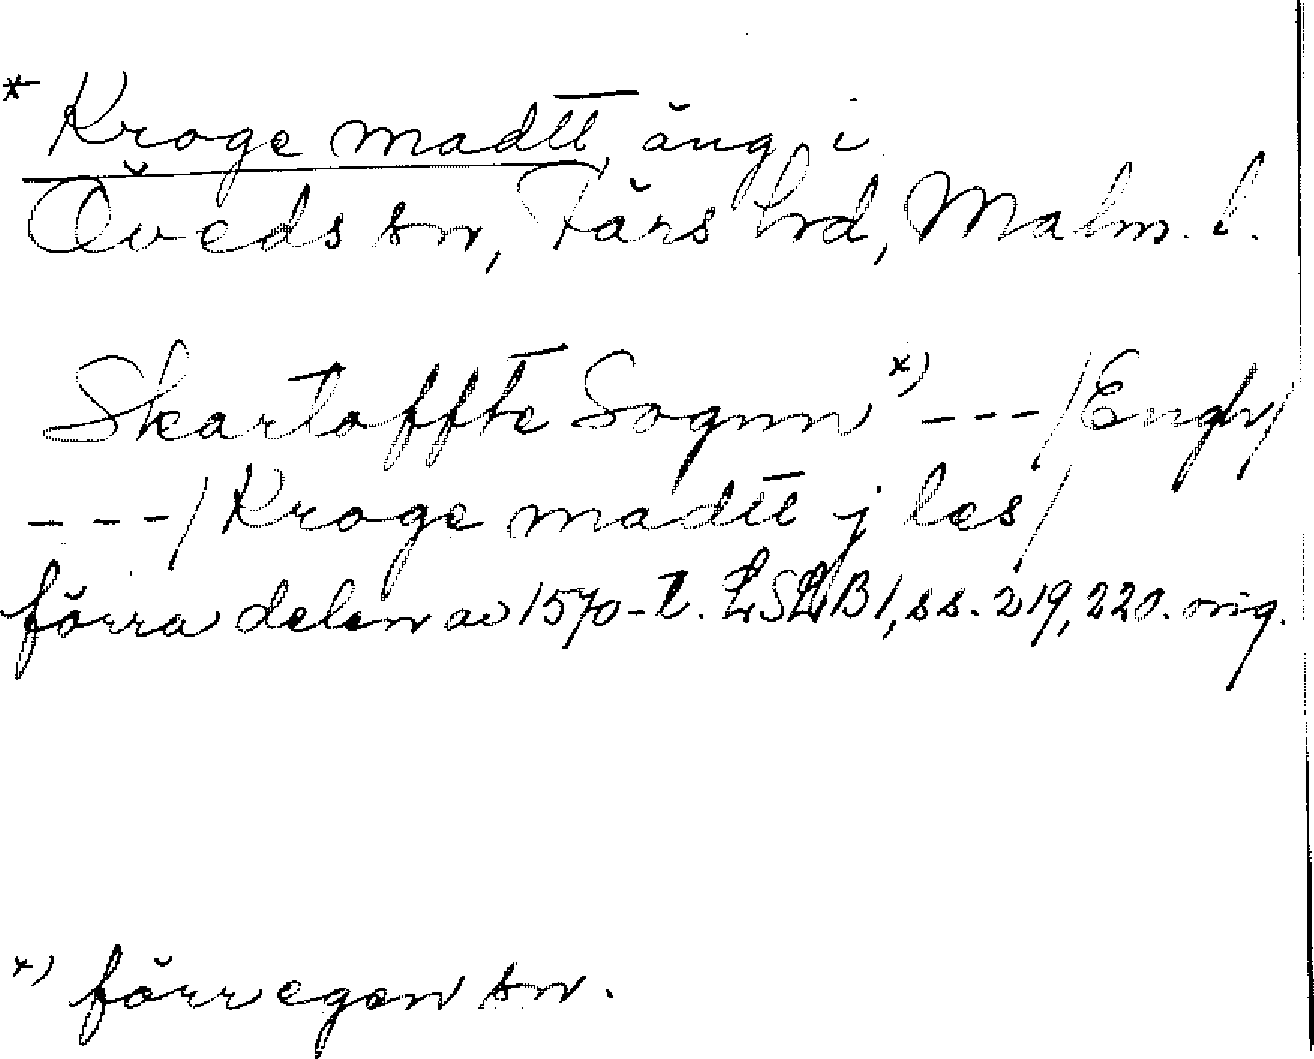 * Kroge madtt, äng i
Öveds sn, Färs hrd, Malm. l.
Skartoffte Sognn *) --- / Engh /
--- / Kroge madtt j les /
förra delen av 1570-t. LSLB 1, ss. 219, 220. orig.
*) förr egen sn.